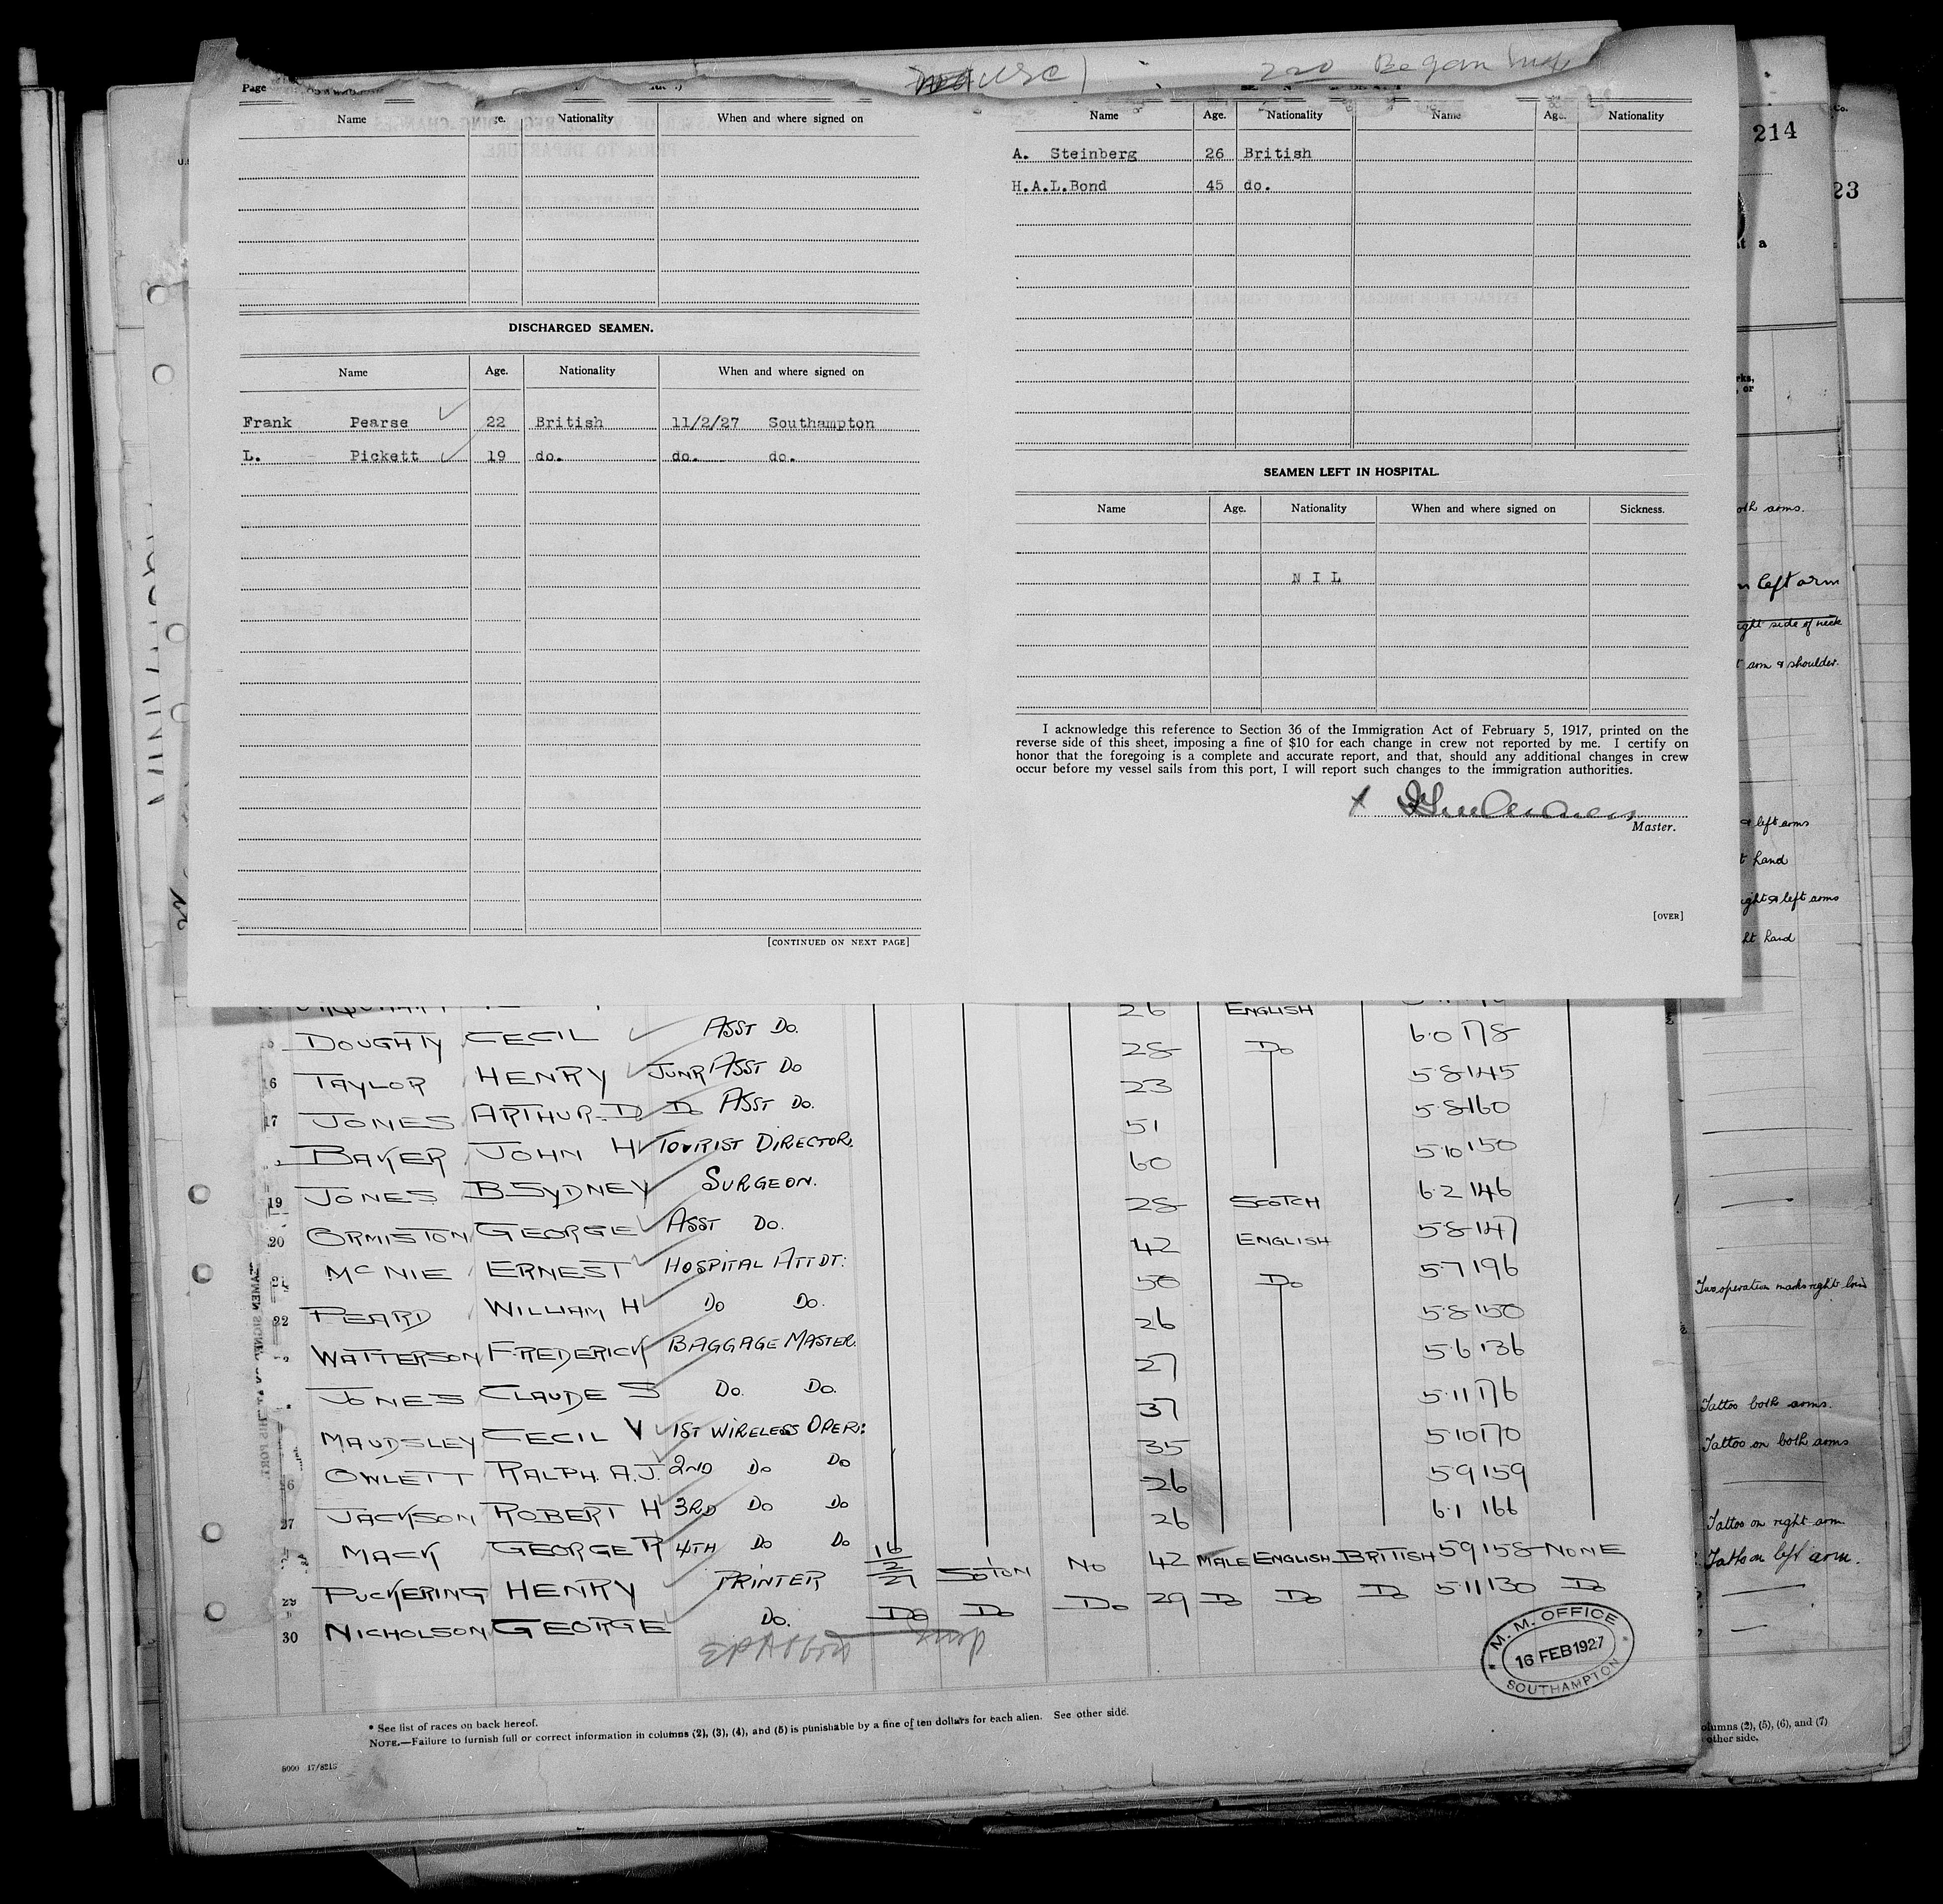 Page
Name Age. Nationality When and where signed on
DISCHARGED SEAMEN.
Name Age. Nationality When and where signed on
Frank Pearse 22 British 11/2/27 Southampton
L. Pickett 19 do. do. do.
[CONTINUED ON NEXT PAGE]
Name Age. Nationality Name Age. Nationality
A. Steinberg 26 British
H.A.L.Bond 45 do.
SEAMEN LEFT IN HOSPITAL.
Name Age. Nationality When and where signed on Sickness.
N I L
I acknowledge this reference to Section 36 of the Immigration Act of February 5, 1917, printed on the
reverse side of this sheet, imposing a fine of $10 for each change in crew not reported by me. I certify on
honor that the foregoing is a complete and accurate report, and that, should any additional changes in crew
occur before my vessel sails from this port, I will report such changes to the immigration authorities.
Master.
[OVER]
26 ENGLISH
DOUGHTY CECIL ASST DO. 28 Do 6.0 178
16 TAYLOR HENRY JUNR ASST DO 23 5.8 145
17 JONES ARTHUR.D Do ASST DO. 51 5.8 160
BAKER JOHN H TOURIST DIRECTOR. 60 5.10 150
19 JONES B.SYDNEY SURGEON. 28 SCOTCH 6.2 146
20 ORMISTON GEORGE ASST DO. 42 ENGLISH 5.8 147
21 McNIE ERNEST HOSPITAL ATTDT: 50 Do 5.7 196
22 PEARD WILLIAM H DO DO. 26 5.8 150
WATTERSON FREDERICK BAGGAGE MASTER. 27 5.6 136
JONES CLAUDE S DO. DO. 37 5.11 176
MAUDSLEY CECIL V 1ST WIRELESS OPER: 35 5.10 170
26 OWLETT RALPH. A.J. 2ND DO DO 26 5.9 159
27 JACKSON ROBERT H 3RD DO DO 26 6.1 166
MACK GEORGE R 4TH DO DO 16/2/27 SOTON NO 42 MALE ENGLISH BRITISH 5.9 158 NONE
29 PUCKERING HENRY PRINTER Do Do Do 29 Do Do Do 5.11 130 Do
30 NICHOLSON GEORGE DO.
M. M. OFFICE
16 FEB 1927
SOUTHAMPTON
* See list of races on back hereof.
NOTE.—Failure to furnish full or correct information in columns (2), (3), (4), and (5) is punishable by a fine of ten dollars for each alien. See other side.
Co.
214
23
at a
rks,
or
both arms.
left arm
right side of neck
arm & shoulder.
& left arms
hand
right & left arms
hand
Two operation marks right
Tattoo both arms.
Tattoo on both arms
Tattoo on right arm
Tattoo on left arm.
columns (2), (5), (6), and (7)
other side.